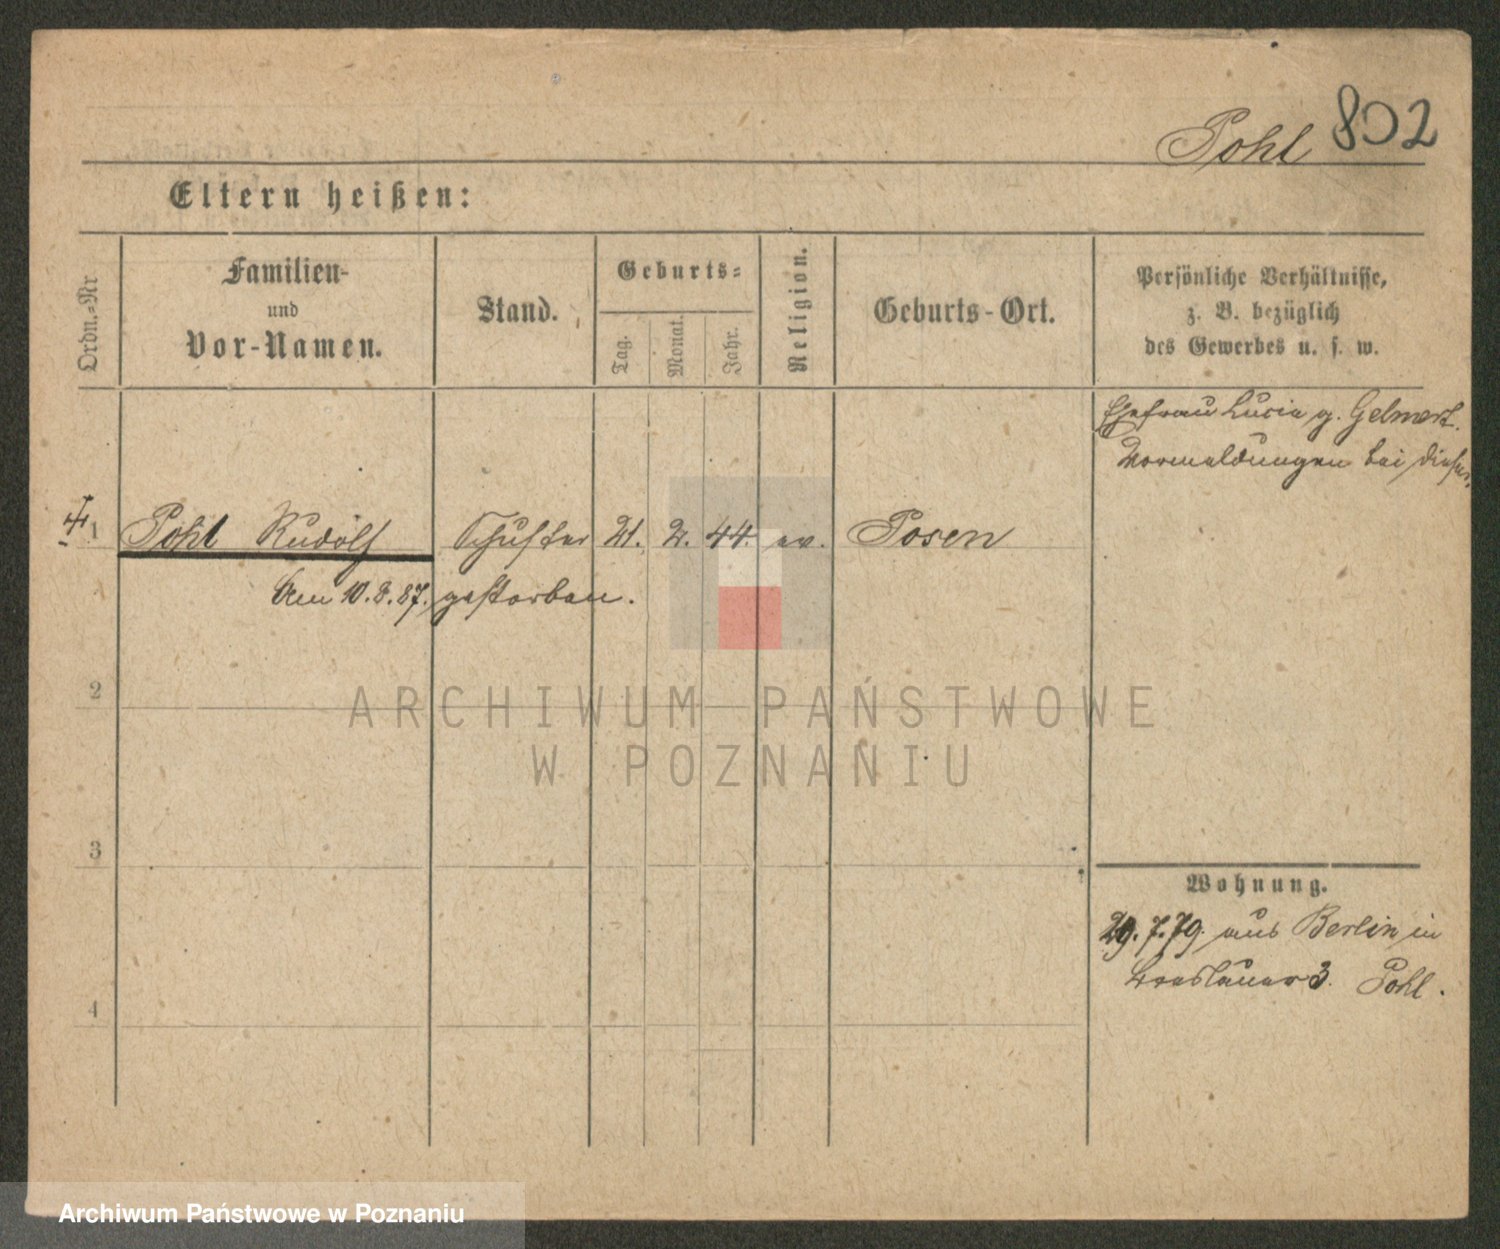 Pohl 802
Eltern heißen:
Ordn.-Nr
Familien-
und
Vor-Namen.
Stand.
Geburts-
Tag.
Monat.
Jahr.
Religion.
Geburts-Ort.
Persönliche Verhältnisse,
z. B. bezüglich
des Gewerbes u. s. w.
Ehefrau Lucia g. Gelmert.
Vormeldungen bei dieser.
1 Pohl Rudolf Schuster 21. 2. 44. ev. Posen
Am 10.8.87. gestorben.
2
ARCHIWUM PAŃSTWOWE
W POZNANIU
3
Wohnung.
29.7.79. aus Berlin in
Breslauer 3. Pohl.
4
Archiwum Państwowe w Poznaniu